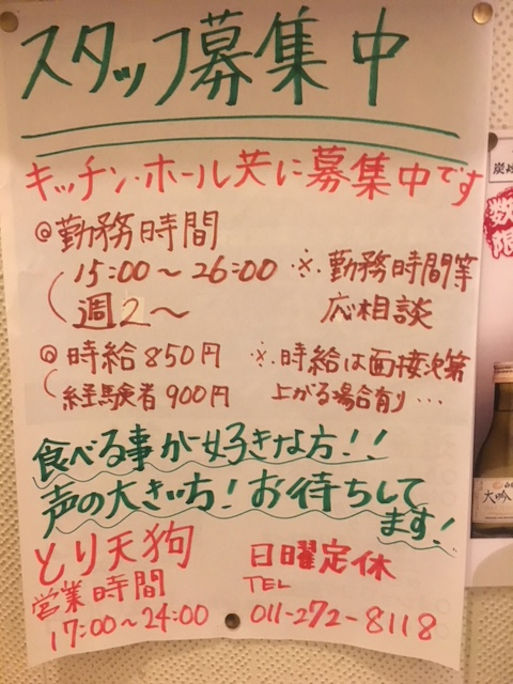 スタッフ募集中
キッチン・ホール共に募集中です
◎勤務時間
15:00～26:00 ※.勤務時間等
週2～ 応相談
◎時給850円 ※.時給は面接次第
経験者900円 上がる場合有り…
食べる事が好きな方!!
声の大きい方!お待ちして
ます!
とり天狗
日曜定休
営業時間
TEL
17:00～24:00 011-272-8118
炭焼
数
限
大吟